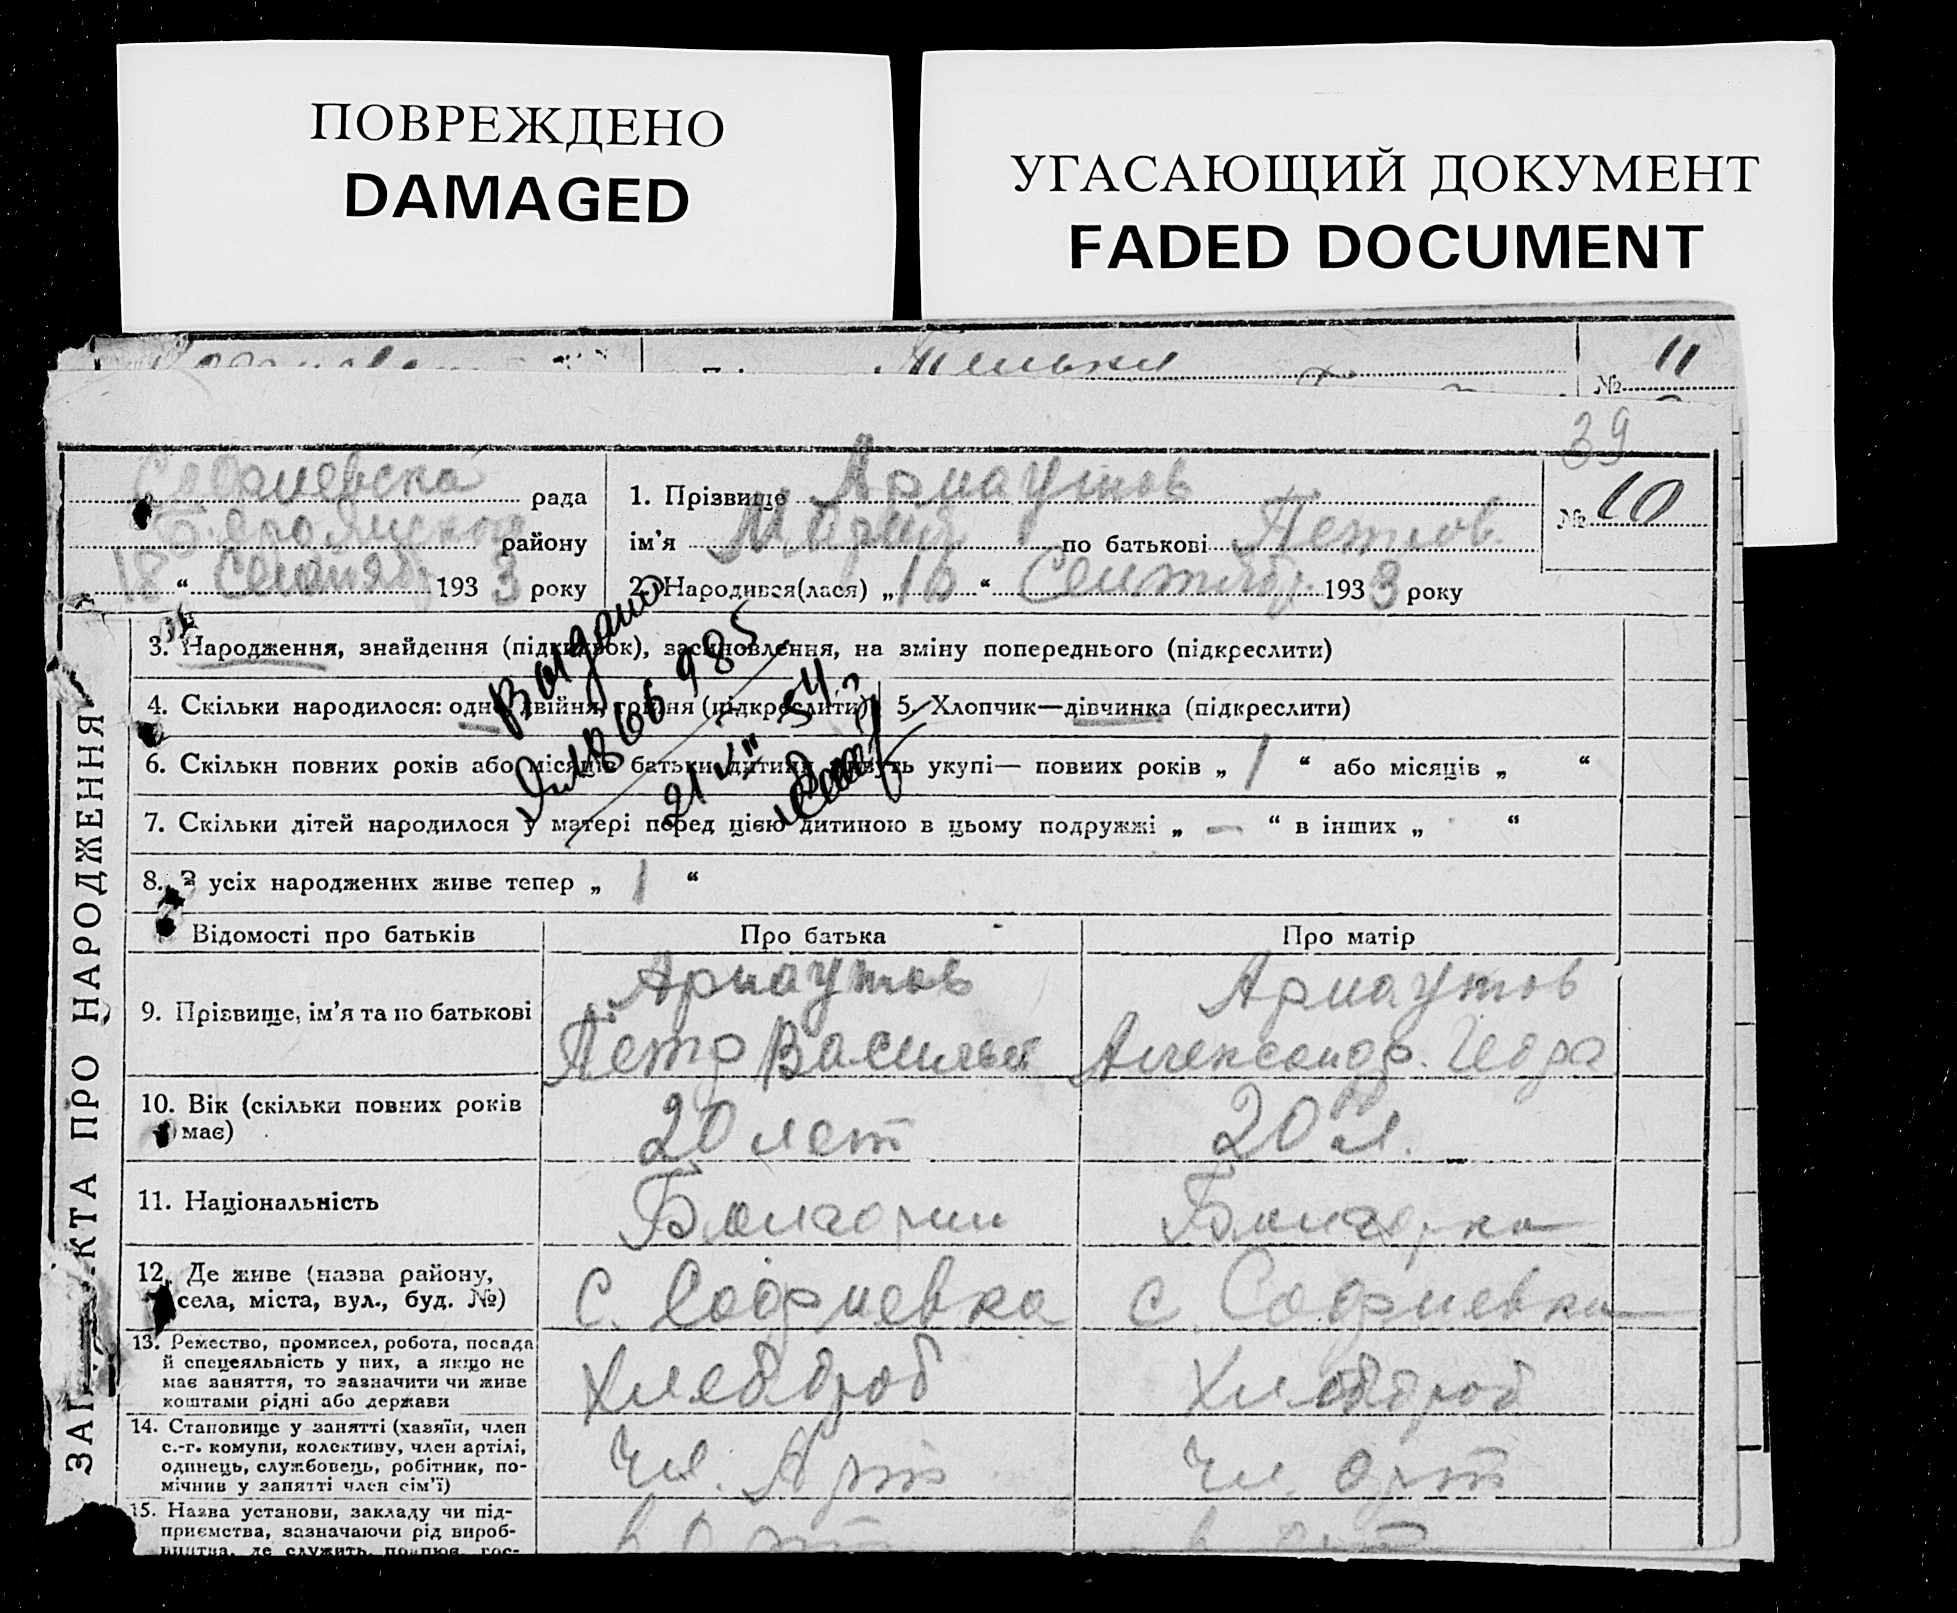 ПОВРЕЖДЕНО
DAMAGED
УГАСАЮЩИЙ ДОКУМЕНТ
FADED DOCUMENT
№ 11
39
рада
району
18 " Сентябр 1933 року
1. Прізвище Арнаутов
ім'я Мария по батькові Петров.
2. Народився(лася) „ 10 “ Сентябр. 1933 року
№ 10
ЗАП КТА ПРО НАРОДЖЕННЯ
3. Народження, знайдення (підкидьок), засиновлення, на зміну попереднього (підкреслити)
4. Скільки народилося: одно, двійня, трійня (підкреслити)
5. Хлопчик—дівчинка (підкреслити)
Выдано
866985
21 VII 54
6. Скільки повних років або місяців батьки дитини живуть укупі— повних років „ 1 “ або місяців „ “
7. Скільки дітей народилося у матері перед цією дитиною в цьому подружжі „ — “ в інших „ “
8. З усіх народжених живе тепер „ 1 “
Відомості про батьків
Про батька
Про матір
9. Прізвище, ім'я та по батькові
Арнаутов
Петр Васильев
Арнаутов
Александр. Федор
10. Вік (скільки повних років
має)
20 лет
20 л.
11. Національність
Болгарин
Болгарка
12. Де живе (назва району,
села, міста, вул., буд. №)
с. Софиевка
с. Софиевка
13. Ремество, промисел, робота, посада
й спецеяльність у них, а якщо не
має заняття, то зазначити чи живе
коштами рідні або держави
Хлебороб
Хлебороб
14. Становище у занятті (хазяїн, член
с.-г. комуни, колективу, член артілі,
одинець, службовець, робітник, по-
мічник у занятті член сім'ї)
Чл. Арт
Чл. арт
15. Назва установи, закладу чи під-
приємства, зазначаючи рід вироб-
ництва, де служить, працює, гос-
в арт
в арт